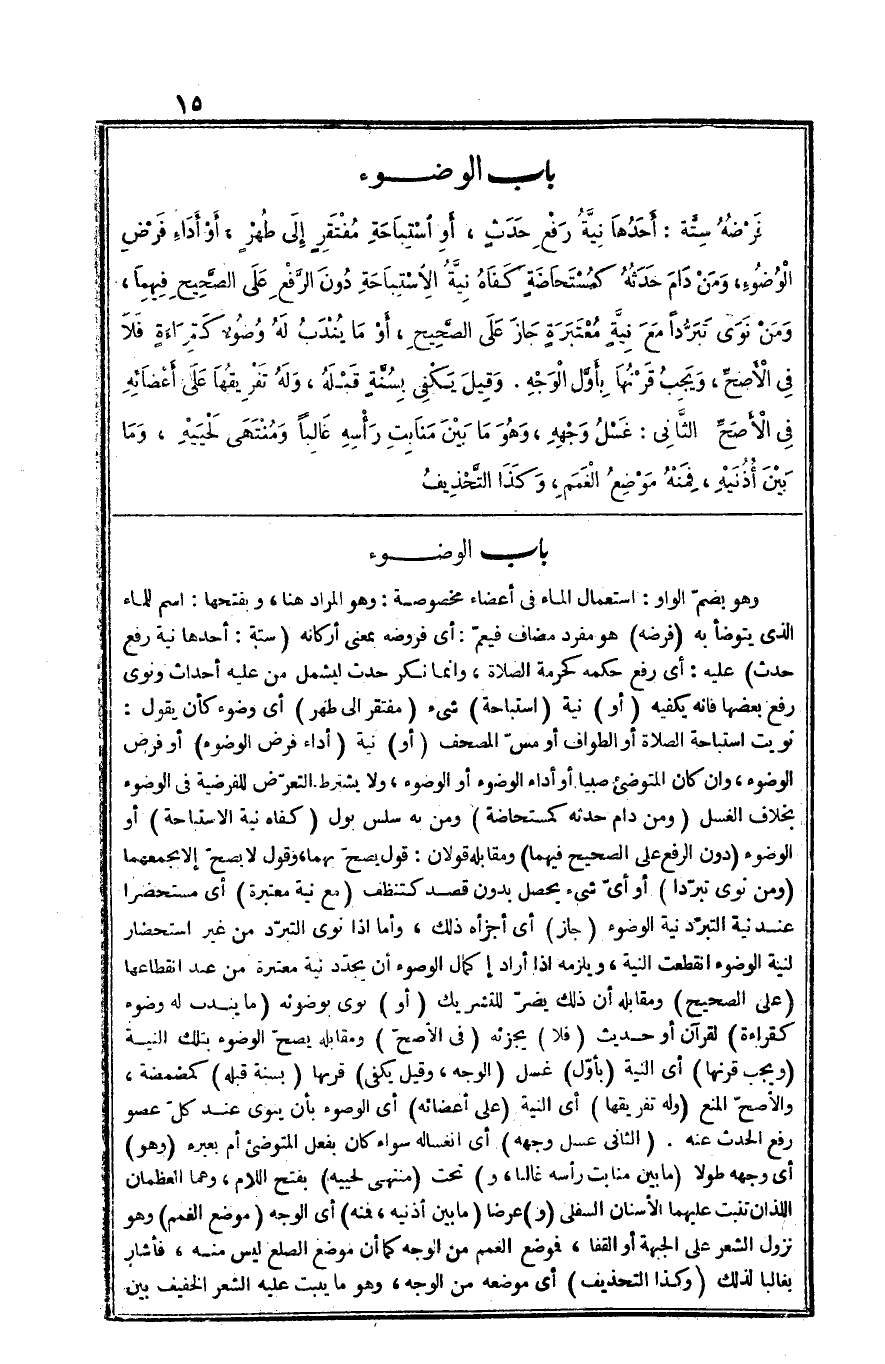 ١٥
باب الوضوء
فَرْضُهُ سِتَّة : أَحَدُهَا نِيَّةُ رَفْعِ حَدَثٍ ، أَوِ اسْتِبَاحَةِ مُفْتَقِرٍ إِلَى طُهْرٍ ، أَوْ أَدَاءِ فَرْضِ
الْوُضُوءِ، وَمَنْ دَامَ حَدَثُهُ كَمُسْتَحَاضَةٍ كَفَاهُ نِيَّةُ الِاسْتِبَاحَةِ دُونَ الرَّفْعِ عَلَى الصَّحِيحِ فِيهِمَا ،
وَمَنْ نَوَى تَبَرُّداً مَعَ نِيَّةٍ مُعْتَبَرَةٍ جَازَ عَلَى الصَّحِيحِ ، أَوْ مَا يُنْدَبُ لَهُ وُضُوءٌ كَقِرَاءَةٍ فَلَا
فِي الْأَصَحِّ ، وَيَجِبُ قَرْنُهَا بِأَوَّلِ الْوَجْهِ . وَقِيلَ يَكْفِي بِسُنَّةٍ قَبْلَهُ ، وَلَهُ تَفْرِيقُهَا عَلَى أَعْضَائِهِ
فِي الْأَصَحِّ الثَّانِى : غَسْلُ وَجْهِهِ ، وَهُوَ مَا بَيْنَ مَنَابِتِ رَأْسِهِ غَالِباً وَمُنْتَهَى لَحْيَيْهِ ، وَمَا
بَيْنَ أُذُنَيْهِ ، فَمِنْهُ مَوْضِعُ الْغَمَمِ ، وَكَذَا التَّحْذِيفُ
باب الوضوء
وهو بضمّ الواو : استعمال الماء فى أعضاء مخصوصة : وهو المراد هنا ، وبفتحها : اسم للماء
الذى يتوضأ به (فرضه) هو مفرد مضاف فيعمّ : أى فروضه بمعنى أركانه (ستة : أحدها نية رفع
حدث) عليه : أى رفع حكمه كحرمة الصلاة ، وانما نكر حدث ليشمل من عليه أحداث ونوى
رفع بعضها فانه يكفيه (أو) نية (استباحة) شىء (مفتقر الى طهر) أى وضوء كأن يقول :
نويت استباحة الصلاة أو الطواف أو مسّ المصحف (أو) نية (أداء فرض الوضوء) أو فرض
الوضوء ، وان كان المتوضئ صبيا أو أداء الوضوء أو الوضوء ، ولا يشترط التعرّض للفرضية فى الوضوء
بخلاف الغسل (ومن دام حدثه كمستحاضة) ومن به سلس بول (كفاه نية الاستباحة) أو
الوضوء (دون الرفع على الصحيح فيهما) ومقابله قولان : قول يصحّ بهما، وقول لا يصحّ إلا بجمعهما
(ومن نوى تبرّدا) أو أىّ شىء يحصل بدون قصد كتنظف (مع نية معتبرة) أى مستحضرا
عند نية التبرّد نية الوضوء (جاز) أى أجزأه ذلك ، وأما اذا نوى التبرّد من غير استحضار
لنية الوضوء انقطعت النية ، ويلزمه اذا أراد إكمال الوضوء أن يجدّد نية معتبرة من عند انقطاعها
(على الصحيح) ومقابله أن ذلك يضرّ للتشريك (أو) نوى بوضوئه (ما يندب له وضوء
كقراءة) لقرآن أو حديث (فلا) يجزئه (فى الأصحّ) ومقابله يصحّ الوضوء بتلك النية
(ويجب قرنها) أى النية (بأوّل) غسل (الوجه ، وقيل يكفى) قرنها (بسنة قبله) كمضمضة ،
والأصحّ المنع (وله تفريقها) أى النية (على أعضائه) أى الوضوء بأن ينوى عند كلّ عضو
رفع الحدث عنه . (الثانى غسل وجهه) أى انغساله سواء كان بفعل المتوضئ أم بغيره (وهو)
أى وجهه طولا (مابين منابت رأسه غالبا ، و) تحت (منتهى لحييه) بفتح اللام ، وهما العظمان
اللذان تنبت عليهما الأسنان السفلى (و) عرضا (مابين أذنيه ، فمنه) أى الوجه (موضع الغمم) وهو
نزول الشعر على الجبهة أو القفا ، فوضع الغمم من الوجه كما أن موضع الصلع ليس منه ، فأشار
بغالبا لذلك (وكذا التحذيف) أى موضعه من الوجه ، وهو ما ينبت عليه الشعر الخفيف بين